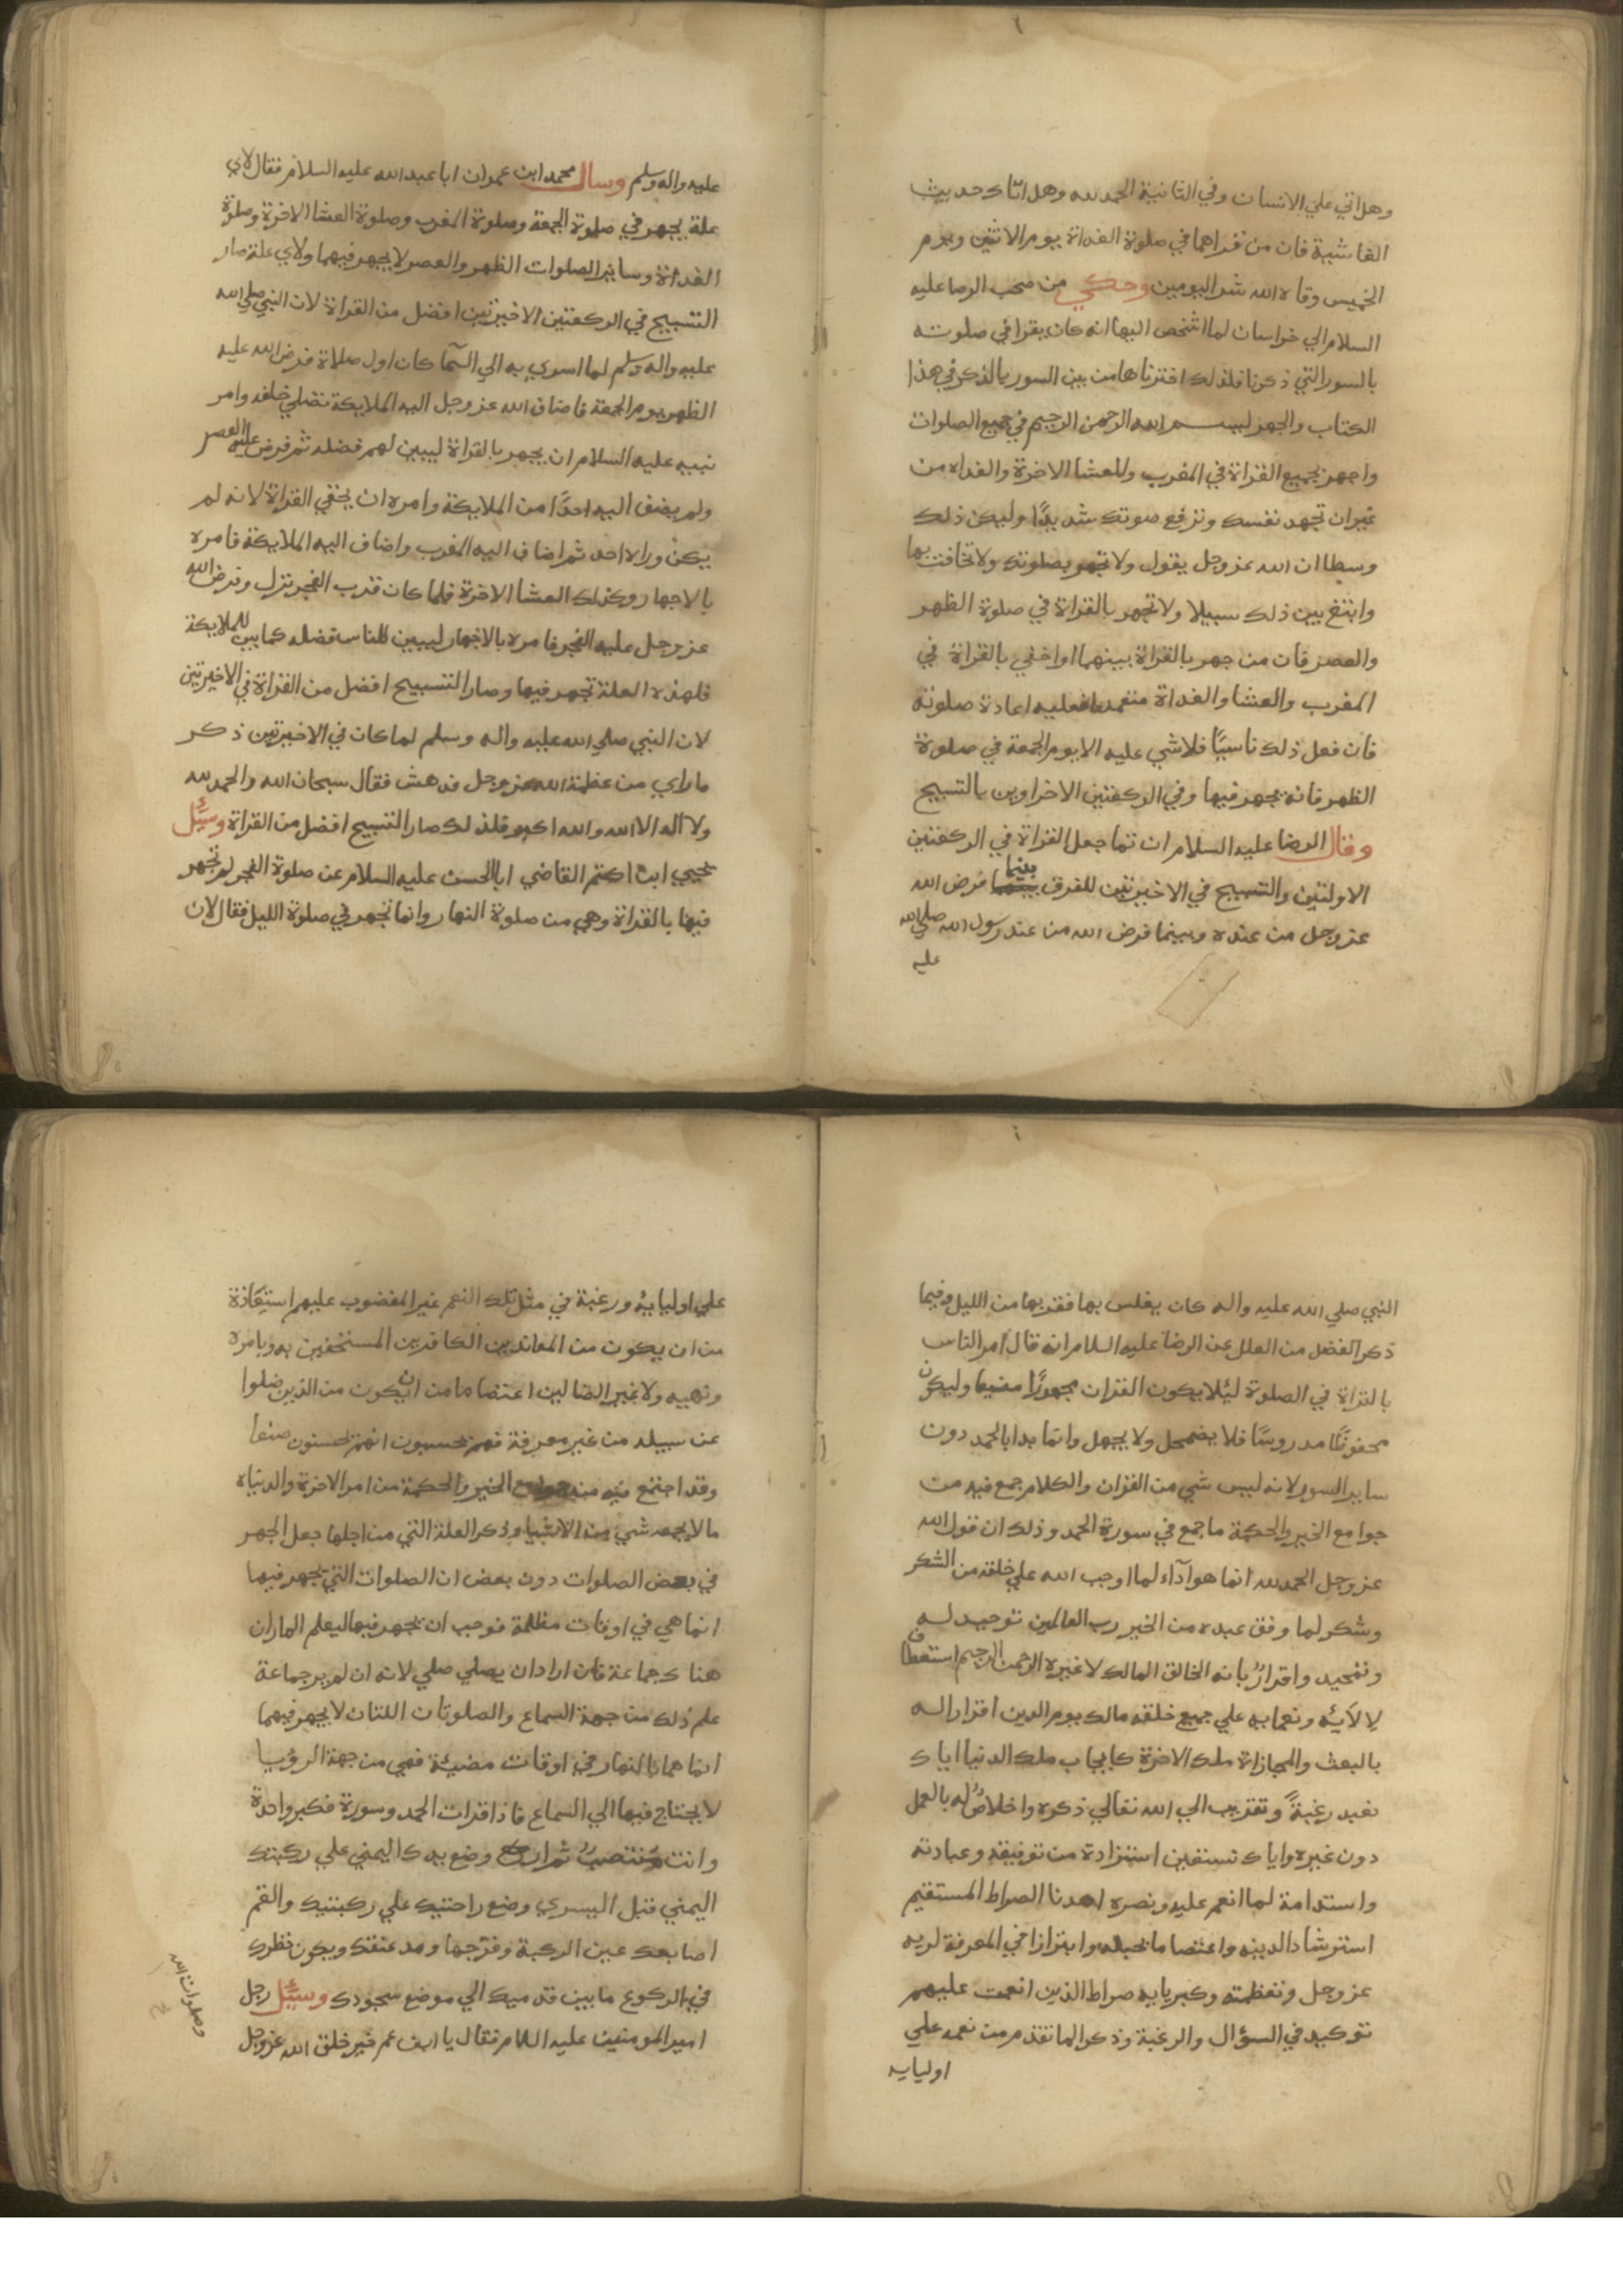 وهل اتي علي الانسان وفي الثانية الحمد لله وهل اتاك حديث
الغاشية فان من قراهما في صلوة الغداة يوم الاثنين ويوم
الخميس وقاه الله شر اليومين وحكي من صحب الرضا عليه
السلام الي خراسان لما اشخص اليها انه كان يقرا في صلوته
بالسور التي ذكرنا فلذلك اخترناها من بين السور بالذكر في هذا
الكتاب والجهر لبسم الله الرحمن الرحيم في جميع الصلوات
واجهر بجميع القراة في المغرب والعشا الاخرة والغداه من
غير ان تجهد نفسك وترفع صوتك شديدًا وليكن ذلك
وسطا ان الله عز وجل يقول ولا تجهر بصلوتك ولا تخافت بها
وابتغ بين ذلك سبيلا ولا تجهر بالقراة في صلوة الظهر
والعصر فان من جهر بالقراة بينهما او اخفي بالقراة في
المغرب والعشا والغداة متعمدا فعليه اعادة صلوته
فان فعل ذلك ناسيًا فلا شي عليه الا يوم الجمعة في صلوة
الظهر فانه يجهر فيها وفي الركعتين الاخراوين بالتسبيح
وقال الرضا عليه السلام انما جعل القراة في الركعتين
الاولتين والتسبيح في الاخيرتين للفرق بينما فرض الله
عز وجل من عنده وبينما فرض الله من عند رسول الله صلي الله
عليه
عليه واله وسلم وسال محمد ابن عمران ابا عبد الله عليه السلام فقال لاي
علة يجهر في صلوة الجمعة وصلوة المغرب وصلوة العشا الاخرة وصلوة
الغداة وساير الصلوات الظهر والعصر لا يجهر فيهما ولاي علة صار
التسبيح في الركعتين الاخيرتين افضل من القراة لان النبي صلي الله
عليه واله وسلم لما اسري به الي السما كان اول صلاة فرض الله عليه
الظهر يوم الجمعة فاضاف الله عز وجل اليه الملايكة تصلي خلفه وامر
نبيه عليه السلام ان يجهر بالقراة ليبين لهم فضله ثم فرض عليه العصر
ولم يضف اليه احدًا من الملايكة وامره ان يخفي القراة لانه لم
يكن وراه احد ثم اضاف اليه المغرب واضاف اليه الملايكة فامره
بالاجهار وكذلك العشا الاخرة فلما كان قرب الفجر نزل وفرض الله
عز وجل عليه الفجر فامره بالاجهار ليبين للناس فضله كما بين للملايكة
فلهذه العلة تجهر فيها وصار التسبيح افضل من القراة في الاخيرتين
لان النبي صلي الله عليه واله وسلم لما كان في الاخيرتين ذكر
ما راي من عظمة الله عز وجل فدهش فقال سبحان الله والحمد لله
ولا اله الا الله والله اكبر فلذلك صار التسبيح افضل من القراة وسئل
يحيي ابن اكثم القاضي ابا الحسن عليه السلام عن صلوة الفجر لم تجهر
فيها بالقراة وهي من صلوة النهار وانما تجهر في صلوة الليل فقال لان
النبي صلي الله عليه واله كان يغلس بها فقربها من الليل وفيما
ذكر الفضل من العلل عن الرضا عليه السلام انه قال امر الناس
بالقراة في الصلوة ليئلا يكون القران مهجورًا مضيعا وليكون
محفوظًا مدروسًا فلا يضمحل ولا يجهل وانما بدا بالحمد دون
ساير السور لانه ليس شي من القران والكلام جمع فيه من
جوامع الخير والحكمة ما جمع في سورة الحمد وذلك ان قول الله
عز وجل الحمد لله انما هو آداء لما اوجب الله علي خلقه من الشكر
وشكر لما وفق عبده من الخير رب العالمين توحيد له
وتمحيد واقرارٌ بانه الخالق المالك لا غيره الرحمن الرحيم استعطاف
لالآيئه ونعمايه علي جميع خلقه مالك يوم الدين اقرار اله
بالبعث والمجازاة ملك الاخرة كايجاب ملك الدنيا اياك
نعبد رغبةً وتقرب الي الله تعالي ذكره واخلاصٌ له بالعمل
دون غيره واياك نستعين استزادة من توفيقه وعبادته
واستدامة لما انعم عليه ونصره اهدنا الصراط المستقيم
استرشاد الدينه واعتصاما بحبله وابتزازا في المعرفة لربه
عز وجل وتعظمته وكبريايه صراط الذين انعمت عليهم
توكيد في السؤال والرغبة وذكر الما تقدم من نعمه علي
اوليايه
علي اوليايئه ورغبة في مثل تلك النعم غير المغضوب عليهم استعاذة
من ان يكون من المعاندين الكافرين المستخفين به وبامره
ونهيه ولا غير الضالين اعتصاما من ان يكون من الذين ضلوا
عن سبيله من غير معرفة فهم يحسبون انهم يحسنون صنعا
وقد اجتمع فيه من جوامع الخير والحكمة من امر الاخرة والدنياه
ما لا يجمعه شي من الاشيا وذكر العلة التي من اجلها جعل الجهر
في بعض الصلوات دون بعض ان الصلوات التي تجهر فيها
انما هي في اوقات مظلمة فوجب ان تجهر فيها ليعلم الماران
هناك جماعة فان اراد ان يصلي صلي لانه ان لم ير جماعة
علم ذلك من جهة السماع والصلوتان اللتان لا يجهر فيهما
انما هما بالنهار في اوقات مضيئة فهي من جهة الرؤيا
لا يحتاج فيها الي السماع فاذا قرات الحمد وسورة فكبر واحدة
وانت منتصبٌ ثم اركع وضع يدك اليمني علي ركبتك
اليمني قبل اليسري وضع راحتيك علي ركبتيك والقم
اصابعك عين الركبة وفرّجها ومد عنقك ويكون نظرك
في الركوع ما بين قدميك الي موضع سجودك وسئل رجل
امير المومنين عليه السلام فقال يا ابن عم خير خلق الله عز وجل
وصلوات الله